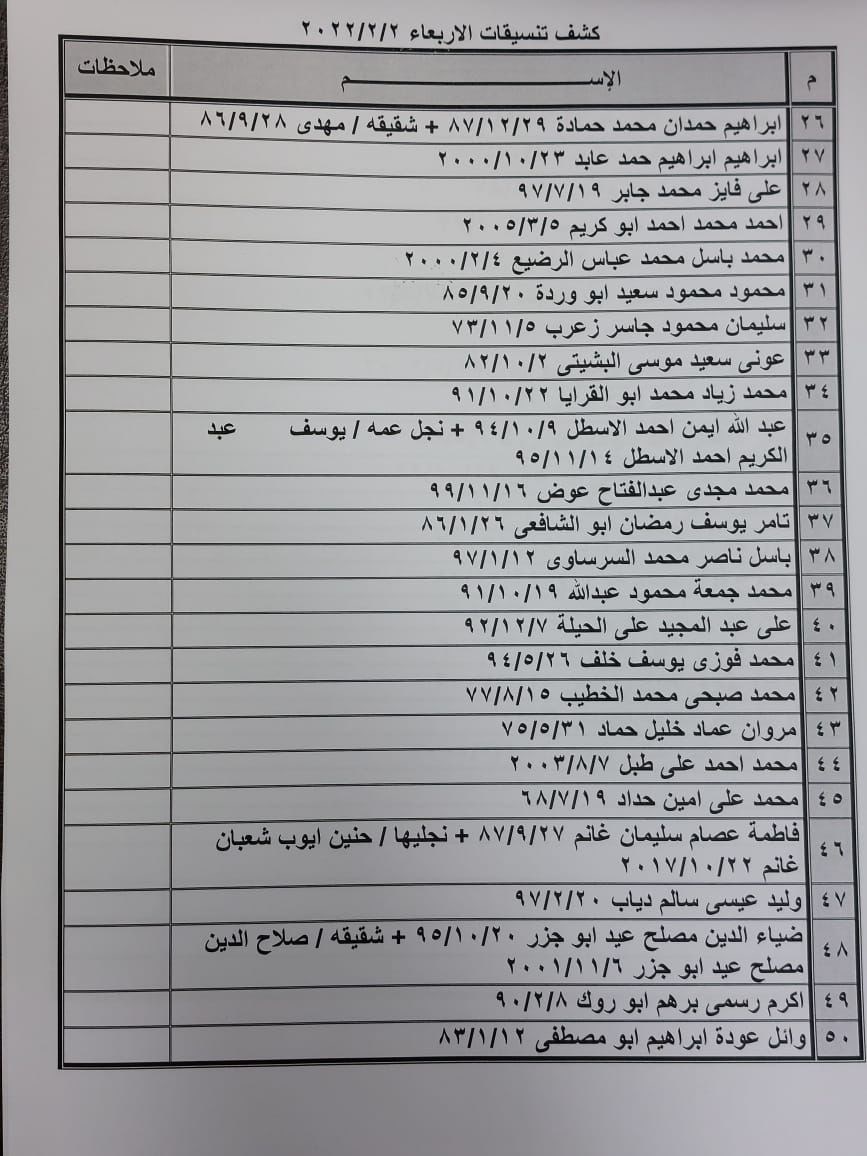 كشف تنسيقات الاربعاء ٢٠٢٢/٢/٢
م الإســـــــــــــم ملاحظات
٢٦ ابراهيم حمدان محمد حمادة ٨٧/١٢/٢٩ + شقيقه / مهدى ٨٦/٩/٢٨
٢٧ ابراهيم ابراهيم حمد عابد ٢٠٠٠/١٠/٢٣
٢٨ على فايز محمد جابر ٩٧/٧/١٩
٢٩ احمد محمد احمد ابو كريم ٢٠٠٥/٣/٥
٣٠ محمد باسل محمد عباس الرضيع ٢٠٠٠/٢/٤
٣١ محمود محمود سعيد ابو وردة ٨٥/٩/٢٠
٣٢ سليمان محمود جاسر زعرب ٧٣/١١/٥
٣٣ عونى سعيد موسى البشيتى ٨٢/١٠/٢
٣٤ محمد زياد محمد ابو القرايا ٩١/١٠/٢٢
٣٥ عبد الله ايمن احمد الاسطل ٩٤/١٠/٩ + نجل عمه / يوسف عبد
الكريم احمد الاسطل ٩٥/١١/١٤
٣٦ محمد مجدى عبدالفتاح عوض ٩٩/١١/١٦
٣٧ تامر يوسف رمضان ابو الشافعى ٨٦/١/٢٦
٣٨ باسل ناصر محمد السرساوى ٩٧/١/١٢
٣٩ محمد جمعة محمود عبدالله ٩١/١٠/١٩
٤٠ على عبد المجيد على الحيلة ٩٢/١٢/٧
٤١ محمد فوزى يوسف خلف ٩٤/٥/٢٦
٤٢ محمد صبحى محمد الخطيب ٧٧/٨/١٥
٤٣ مروان عماد خليل حماد ٧٥/٥/٣١
٤٤ محمد احمد على طبل ٢٠٠٣/٨/٧
٤٥ محمد على امين حداد ٦٨/٧/١٩
٤٦ فاطمة عصام سليمان غانم ٨٧/٩/٢٧ + نجليها / حنين ايوب شعبان
غانم ٢٠١٧/١٠/٢٢
٤٧ وليد عيسى سالم دياب ٩٧/٢/٢٠
٤٨ ضياء الدين مصلح عيد ابو جزر ٩٥/١٠/٢٠ + شقيقه / صلاح الدين
مصلح عيد ابو جزر ٢٠٠١/١١/٦
٤٩ اكرم رسمى برهم ابو روك ٩٠/٢/٨
٥٠ وائل عودة ابراهيم ابو مصطفى ٨٣/١/١٢